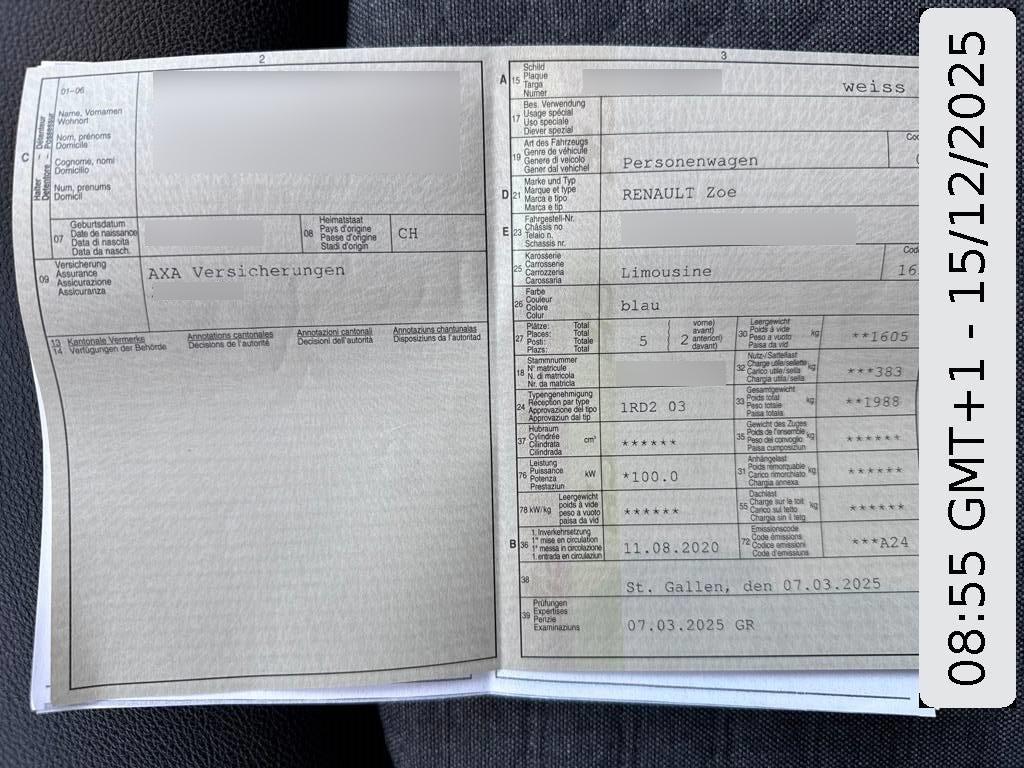 2
01-06
C
Halter - Détenteur
Detentore - Possessur
Name, Vornamen
Wohnort
Nom, prénoms
Domicile
Cognome, nomi
Domicilio
Num, prenums
Domicil
07
Geburtsdatum
Date de naissance
Data di nascita
Data da nasch.
08
Heimatstaat
Pays d'origine
Paese d'origine
Stadi d'origin
CH
09
Versicherung
Assurance
Assicurazione
Assicuranza
AXA Versicherungen
13 Kantonale Vermerke
14 Verfügungen der Behörde
Annotations cantonales
Décisions de l'autorité
Annotazioni cantonali
Decisioni dell'autorità
Annotaziuns chantunalas
Disposiziuns da l'autoritad
3
A 15
Schild
Plaque
Targa
Numer
weiss
17
Bes. Verwendung
Usage spécial
Uso speciale
Diever spezial
19
Art des Fahrzeugs
Genre de véhicule
Genere di veicolo
Gener dal vehichel
Personenwagen
D 21
Marke und Typ
Marque et type
Marca e tipo
Marca e tip
RENAULT Zoe
E 23
Fahrgestell-Nr.
Châssis no
Telaio n.
Schassis nr.
25
Karosserie
Carrosserie
Carrozzeria
Carossaria
Limousine
16
26
Farbe
Couleur
Colore
Colur
blau
27
Plätze: Total
Places: Total
Posti: Totale
Plazs: Total
5
2
vorne)
avant)
anteriori)
davant)
30
Leergewicht
Poids à vide
Peso a vuoto
Paisa da vid
kg
**1605
18
Stammnummer
N° matricule
N. di matricola
Nr. da matricla
32
Nutz-/Sattellast
Charge utile/sellette
Carico utile/sella
Chargia utila/sella
kg
***383
24
Typengenehmigung
Réception par type
Approvazione del tipo
Approvaziun dal tip
1RD2 03
33
Gesamtgewicht
Poids total
Peso totale
Paisa totala
kg
**1988
37
Hubraum
Cylindrée
Cilindrata
Cilindrada
cm³
******
35
Gewicht des Zuges
Poids de l'ensemble
Peso del convoglio
Paisa cumposiziun
kg
******
76
Leistung
Puissance
Potenza
Prestaziun
kW
*100.0
31
Anhängelast
Poids remorquable
Carico rimorchiato
Chargia annexa
kg
******
78 kW/kg
Leergewicht
poids à vide
peso a vuoto
paisa da vid
******
55
Dachlast
Charge sur le toit
Carico sul tetto
Chargia sin il tetg
kg
******
B 36
1. Inverkehrsetzung
1re mise en circulation
1a messa in circolazione
1. entrada en circulaziun
11.08.2020
72
Emissionscode
Code émissions
Codice emissioni
Code d'emissiuns
***A24
38
St. Gallen, den 07.03.2025
39
Prüfungen
Expertises
Perizie
Examinaziuns
07.03.2025 GR
08:55 GMT+1 - 15/12/2025